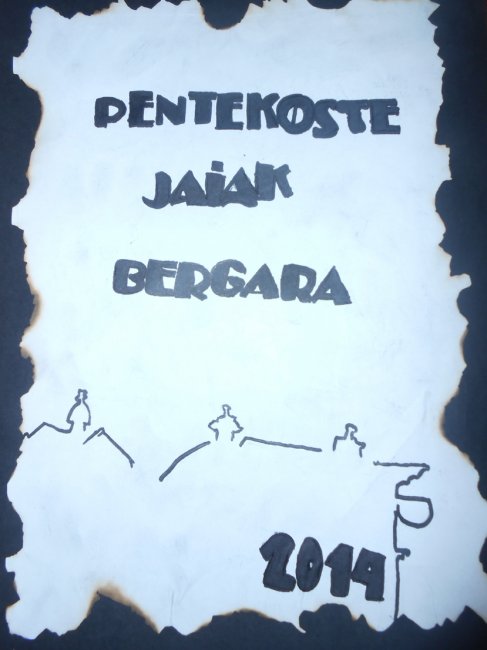 PENTEKOSTE
JAiAK
BERGARA
2014